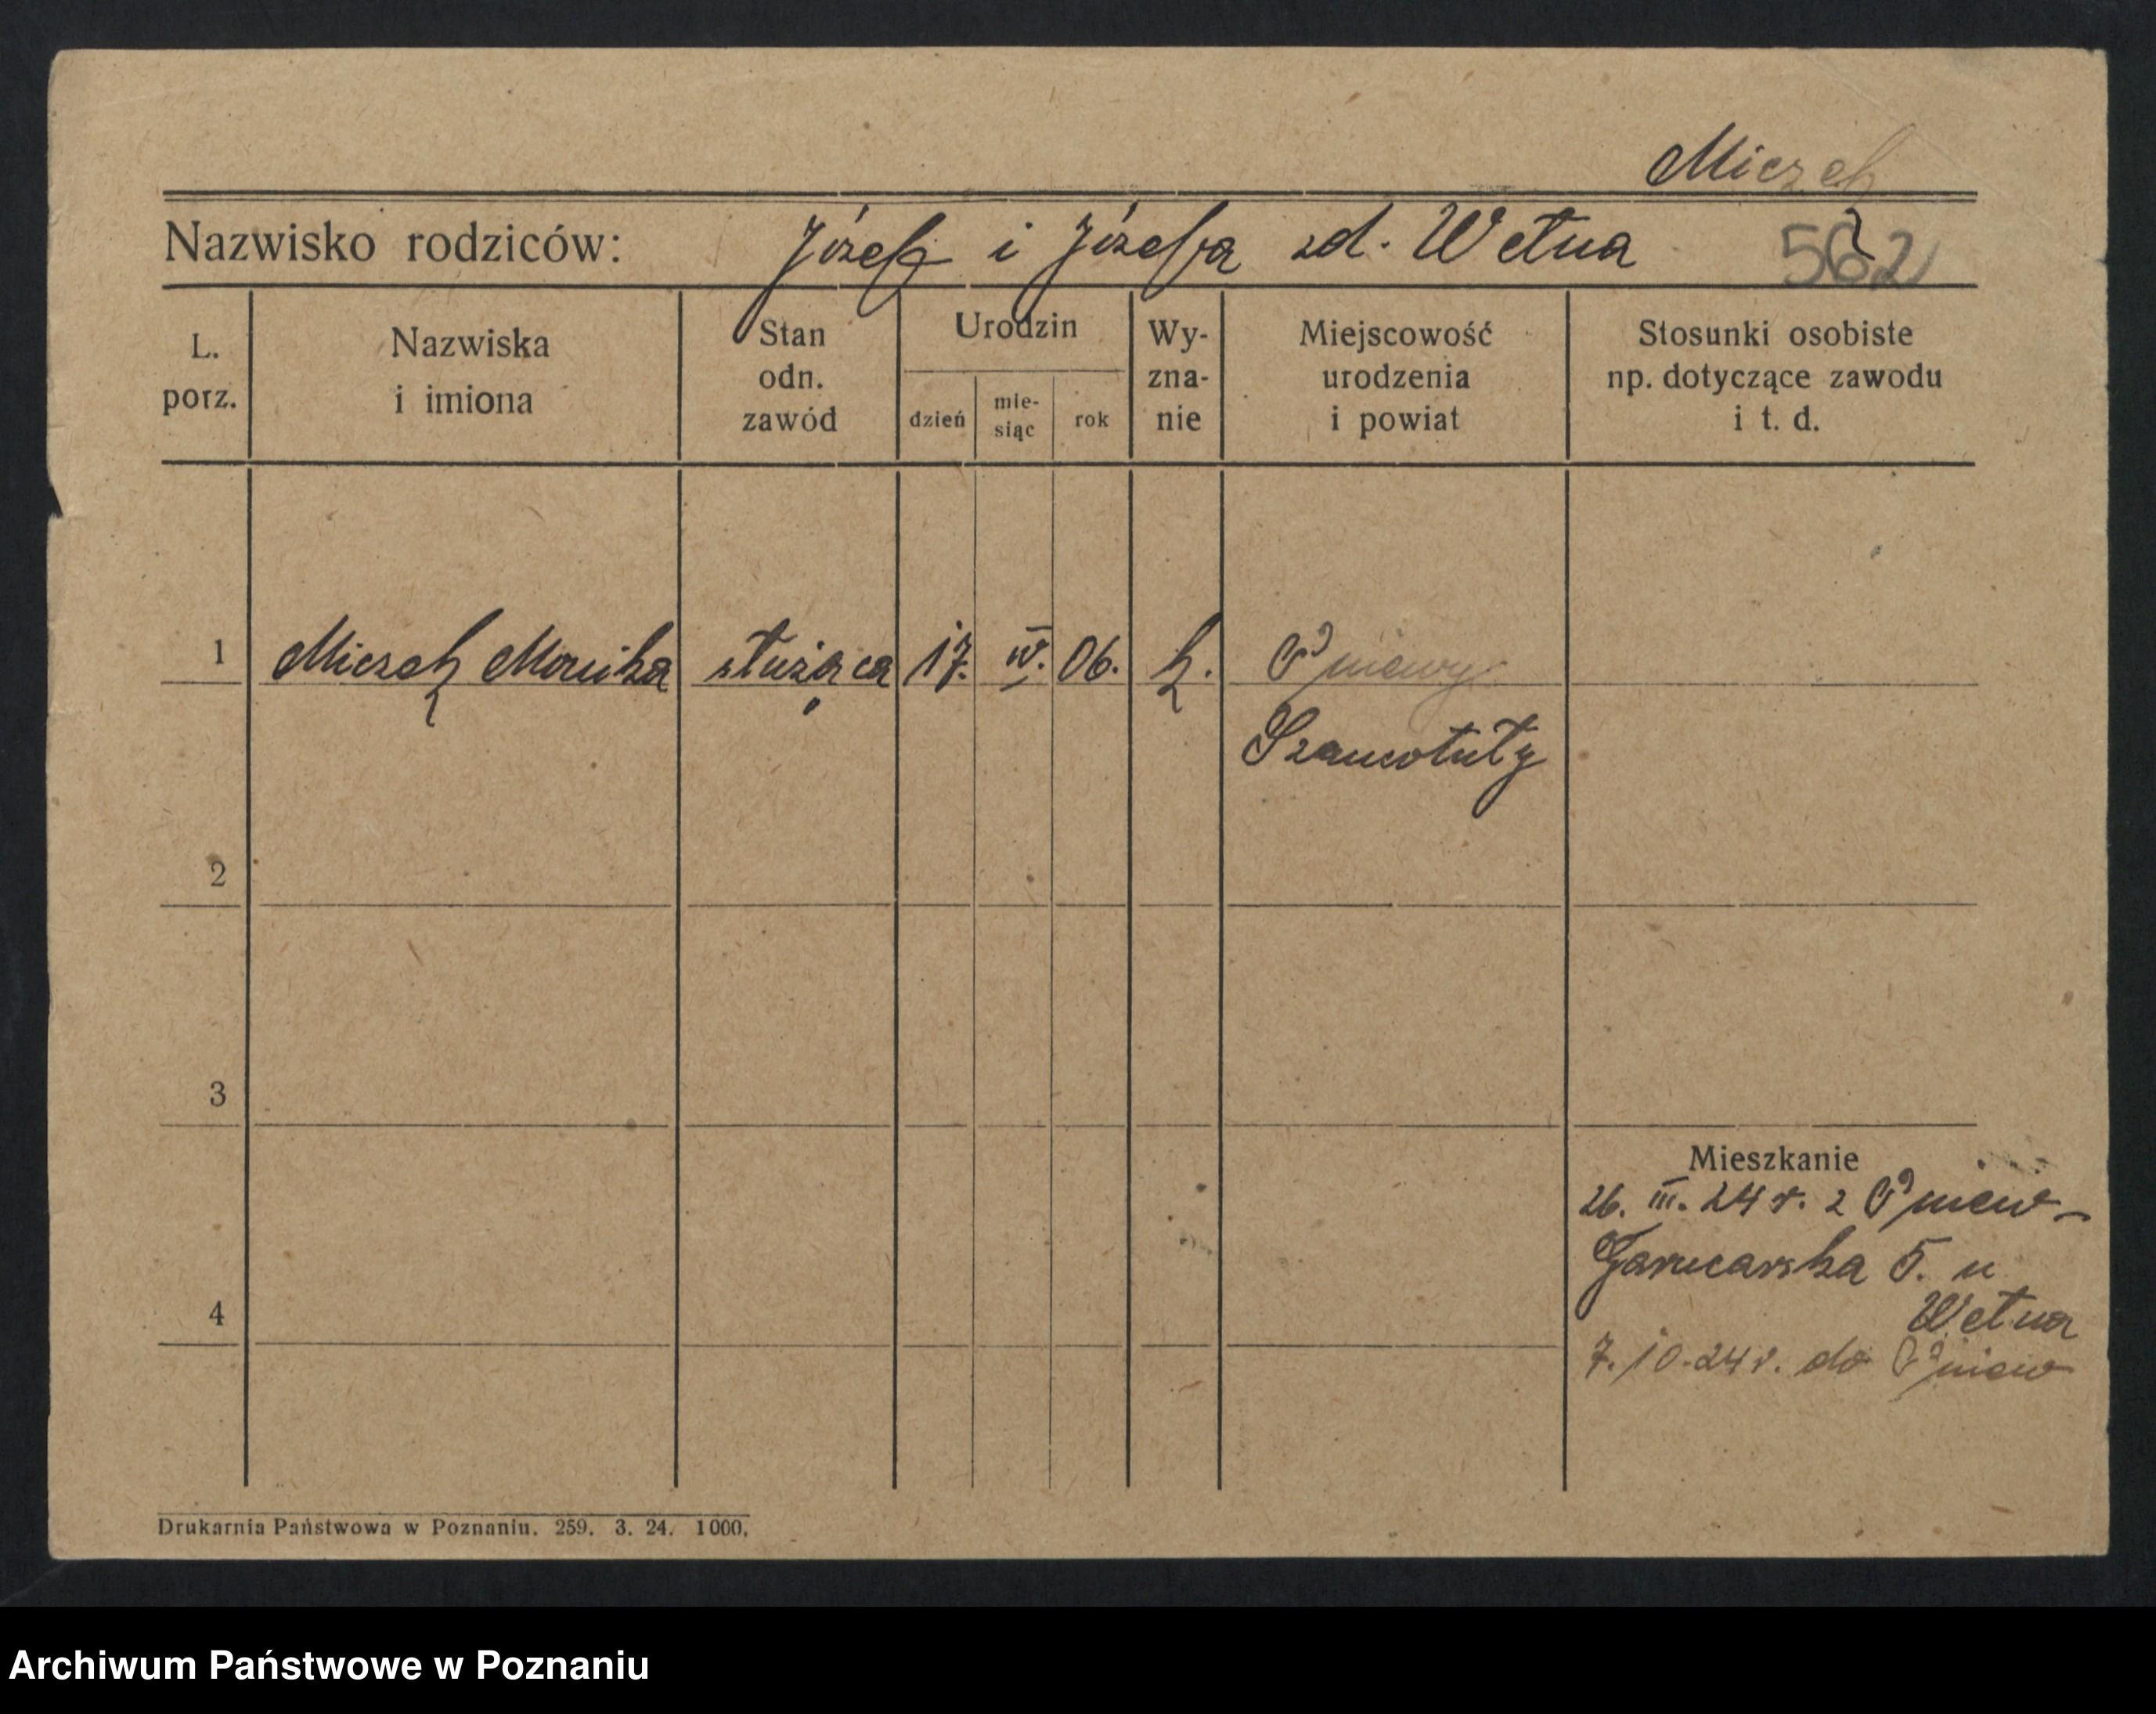 Miczek
Nazwisko rodziców: Józef i Józefa zd. Wetna 562
L. porz.
Nazwiska i imiona
Stan odn. zawód
Urodzin
dzień
mie-
siąc
rok
Wy-
zna-
nie
Miejscowość
urodzenia
i powiat
Stosunki osobiste
np. dotyczące zawodu
i t. d.
1 Miczek Monika służąca 17. IV. 06. k. Pniewy
Szamotuły
2
3
Mieszkanie
26. III. 24 r. z Pniew –
Garncarska 5. u
Wetna
4
7. 10. 24 r. do Pniew
Drukarnia Państwowa w Poznaniu. 259. 3. 24. 1000.
Archiwum Państwowe w Poznaniu